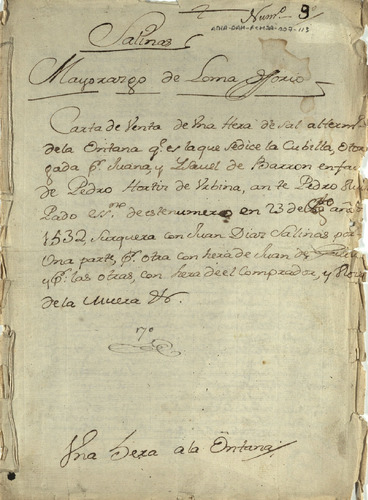 Num.º 9º
ATHA-DAH-FCMDA-007-113
Salinas
Mayorazgo de Loma Ossorio
Carta de Venta de Vna Hera de Sal al term.º
de la Ontana q.e es la que se dice la Cubilla, otor
gada p.r Juana, y Ysavel de Barron en fav.r
de Pedro Hortiz de Vrbina, ante Pedro
Pado ess.no de este numero en 23 de año
1532, Surquera con Juan Diaz Salinas por
Vna parte, p.r otra con hera de Juan de
y p.r las otras, con hera de el Comprador, y
de la Muera &.
7º
Vna hera a la Ontana